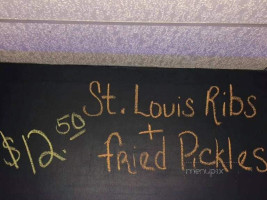 St. Louis Ribs
+
$12.50 fried Pickles
menupix